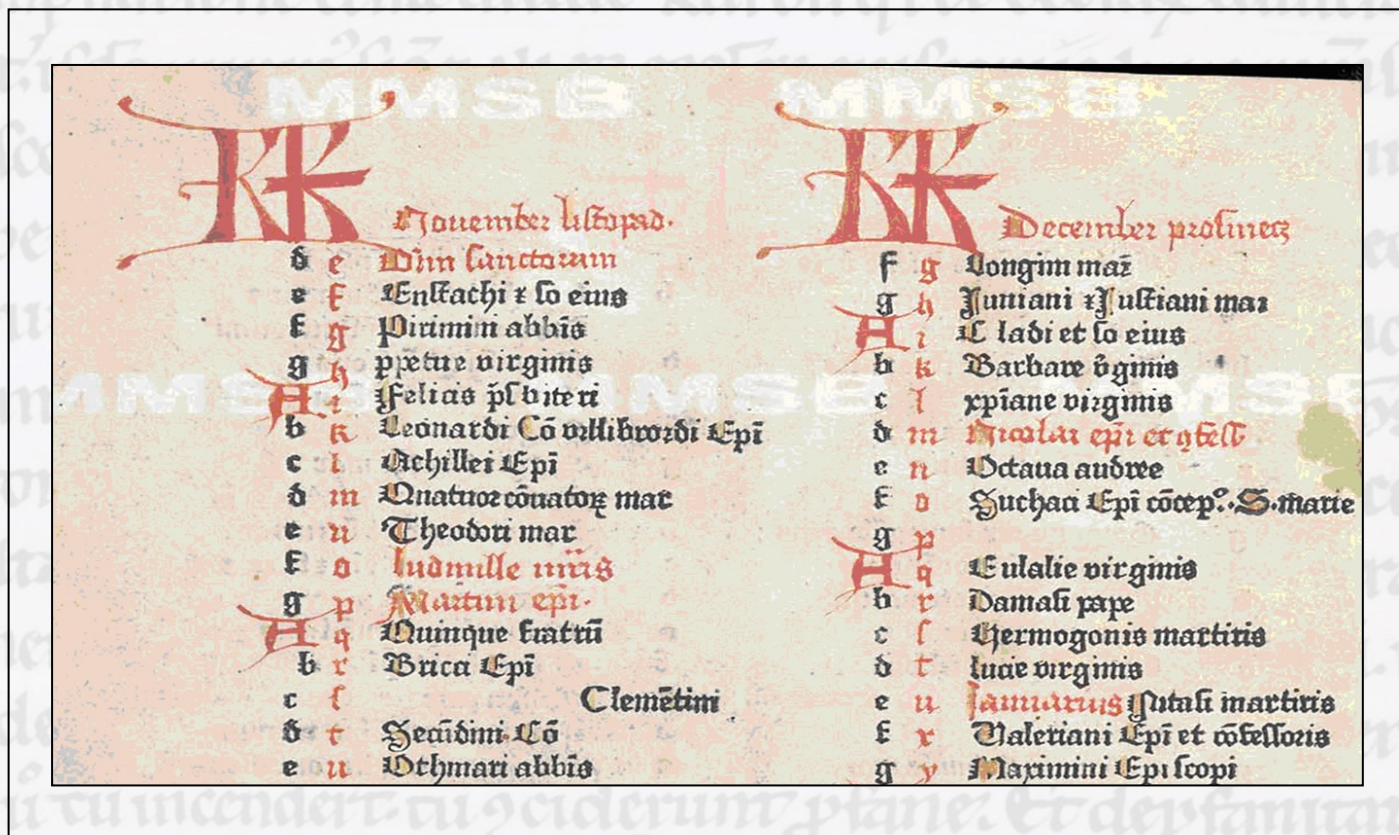 MMSB MMSB
KK
November listopad.
d e Om̄ sanctorum
e f Eustachi ⁊ so eius
f g Pirimini abbīs
g h ppetue virginis
A i Felicis p̄sbiteri
b k Leonardi Cō villibrordi Epī
c l Achillei Epī
d m Quatuor cōnatoꝝ mar
e n Theodori mar
f o ludmille m̄ris
g p Martini epī.
A q Quinque fratrū
b r Bricci Epī
c s Clemētini
d t Secūdini Cō
e u Othmari abbīs
KK
December prosinecz
f g Longini mar̄
g h Juniani ⁊ Justiani mar
A i Cladi et so eius
b k Barbare v̄ginis
c l xp̄iane virginis
d m Nicolai epī et ꝯfess
e n Octaua andree
f o Euchari Epī cōcep°. S. marie
g p
A q Eulalie virginis
b r Damasi pape
c s Hermogonis martiris
d t lucie virginis
e u Januarius Nitasi martiris
f x Valeriani Epī et cōfessoris
g y Maximini Episcopi
MMSB MMSB MMSB